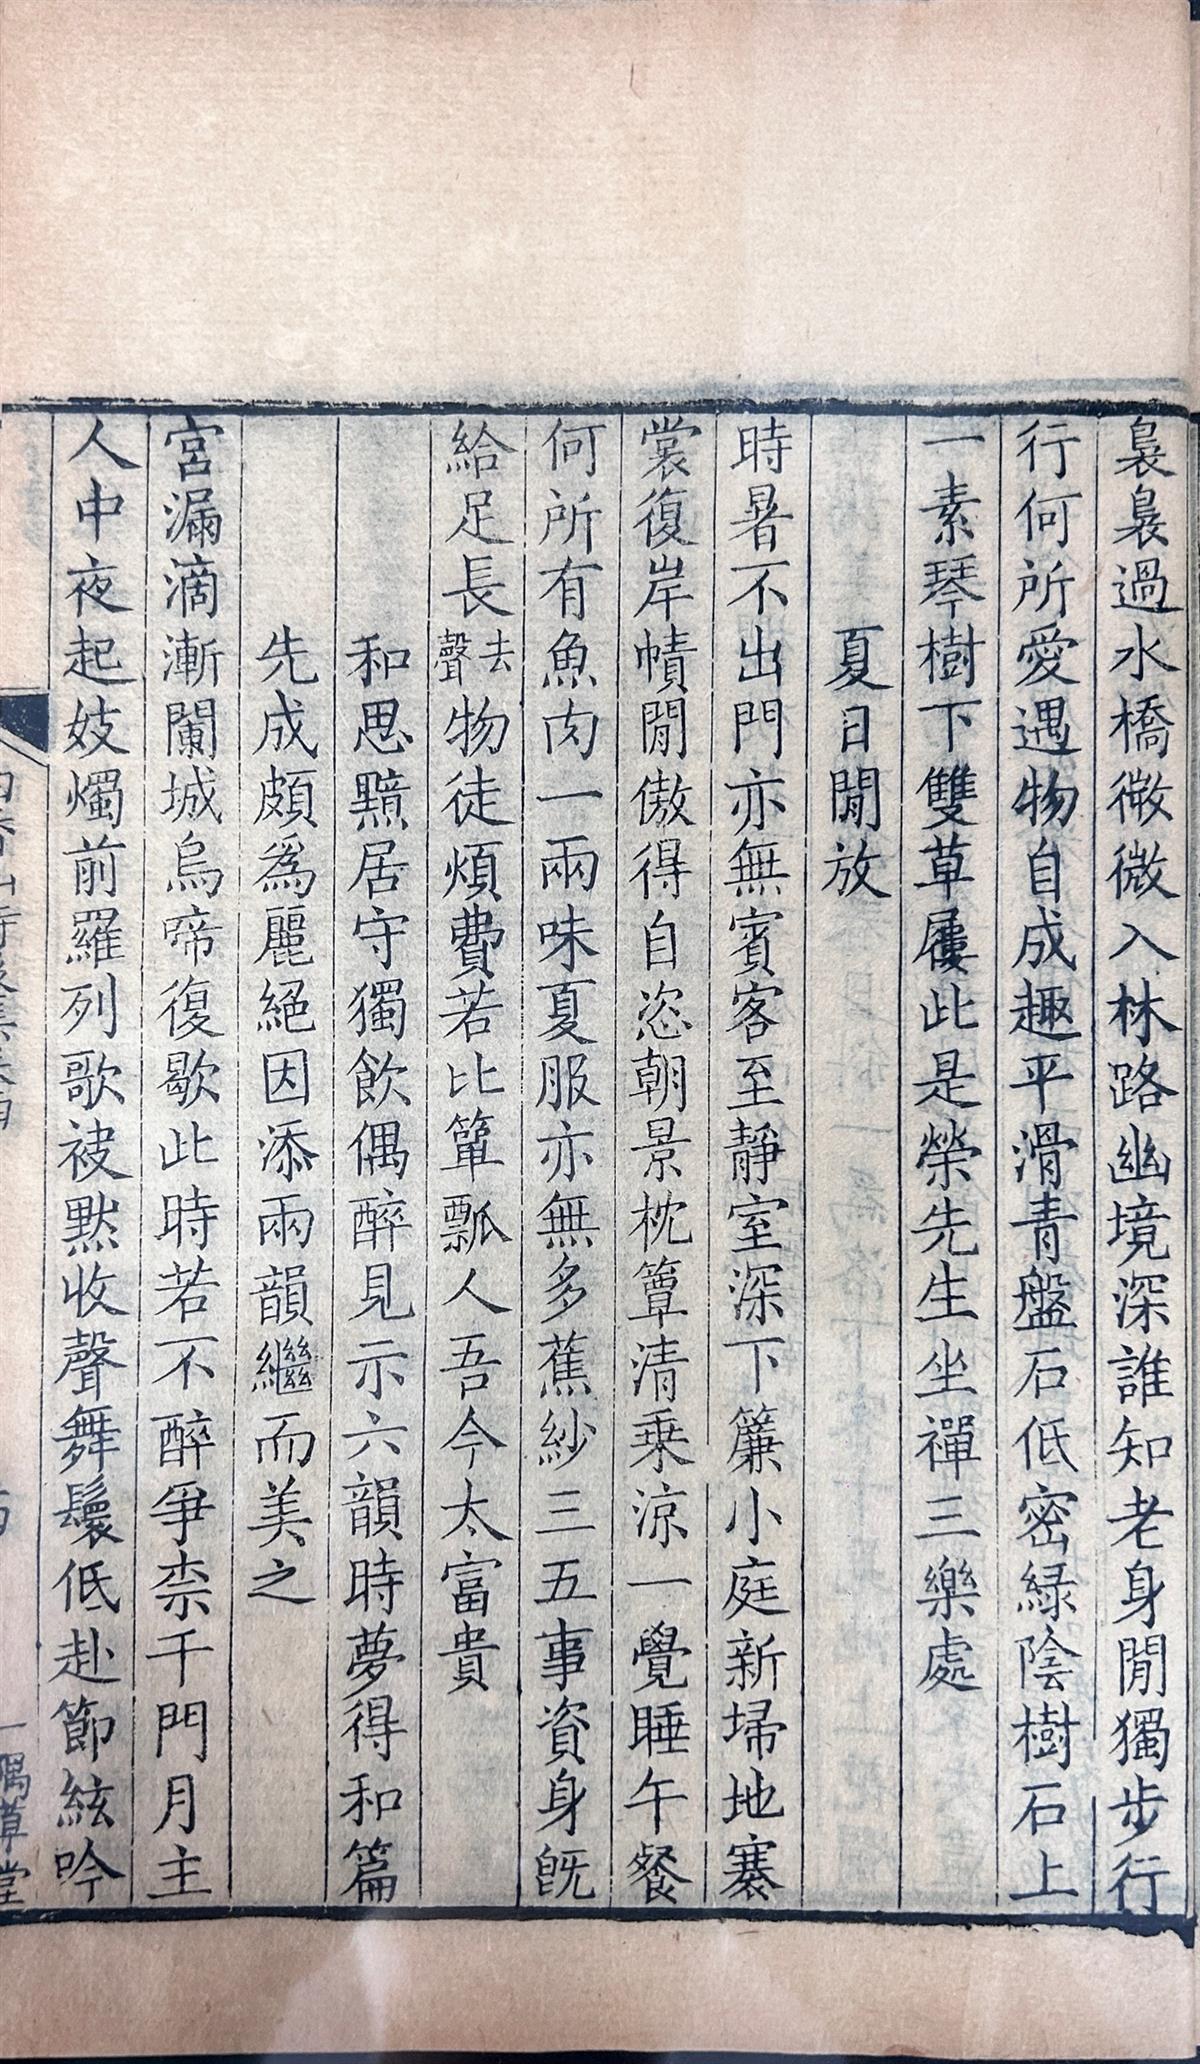 裊裊過水橋微微入林路幽境深誰知老身閒獨步行
行何所愛遇物自成趣平滑青盤石低密緑陰樹石上
一素琴樹下雙草屨此是榮先生坐禪三樂處
夏日閒放
時暑不出門亦無賓客至靜室深下簾小庭新埽地褰
裳復岸幘閒傲得自恣朝景枕簟清乗涼一覺睡午餐
何所有魚肉一兩味夏服亦無多蕉紗三五事資身旣
給足長去聲物徒煩費若比簞瓢人吾今太富貴
和思黯居守獨飲偶醉見示六韻時夢得和篇
先成頗爲麗絕因添兩韻繼而美之
宮漏滴漸闌城烏啼復歇此時若不醉爭柰千門月主
人中夜起妓燭前羅列歌袂默收聲舞鬟低赴節絃吟
一隅草堂